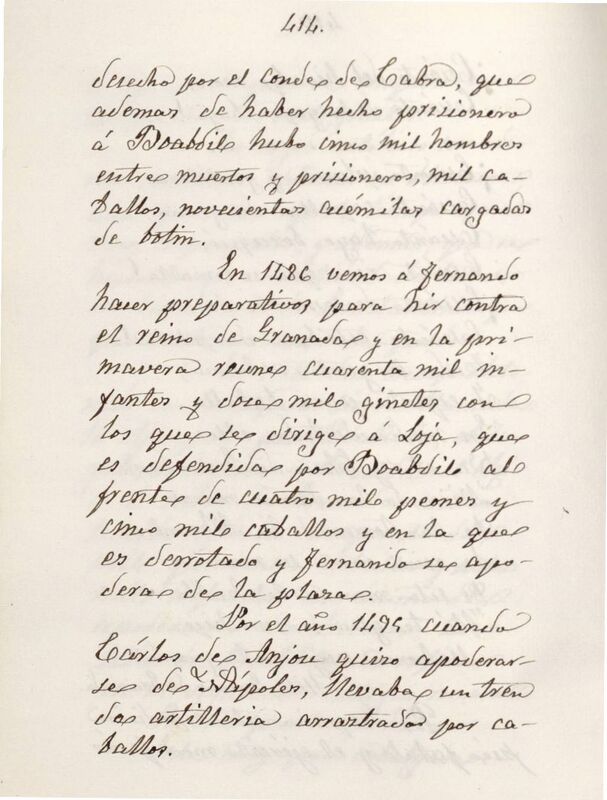 414.
desecho por el conde de Cabra, que
ademas de haber hecho prisionero
á Boabdil hubo cinco mil hombres
entre muertos y prisioneros, mil ca-
ballos, novecientas acémilas cargadas
de botin.
En 1486 vemos á Fernando
hacer preparativos para hir contra
el reino de Granada y en la pri-
mavera reune cuarenta mil in-
fantes y doce mil ginetes con
los que se dirige á Loja, que
es defendida por Boabdil al
frente de cuatro mil peones y
cinco mil caballos y en la que
es derrotado y Fernando se apo-
dera de la plaza.
Por el año 1495 cuando
Cárlos de Anjou quizo apoderar-
se de Nápoles, llevaba un tren
de artilleria arrastrado por ca-
ballos.